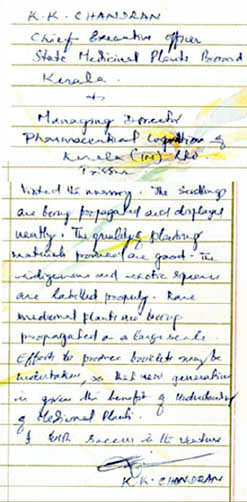 K.K. CHANDRAN
Chief Executive Officer
State Medicinal Plants Board
Kerala.
&
Managing Director
Pharmaceutical Corporation of
Kerala (IM) Ltd.
Trissur
Visited the nursery. The seedlings
are being propagated and displayed
neatly. The quality of planting
materials produced are good. The
indigenous and exotic species
are labelled properly. Rare
medicinal plants are being
propagated on a large scale.
Efforts to produce booklets may be
undertaken, so that new generation
is given the benefit of
of Medicinal Plants.
I wish success in the venture
K.K. CHANDRAN